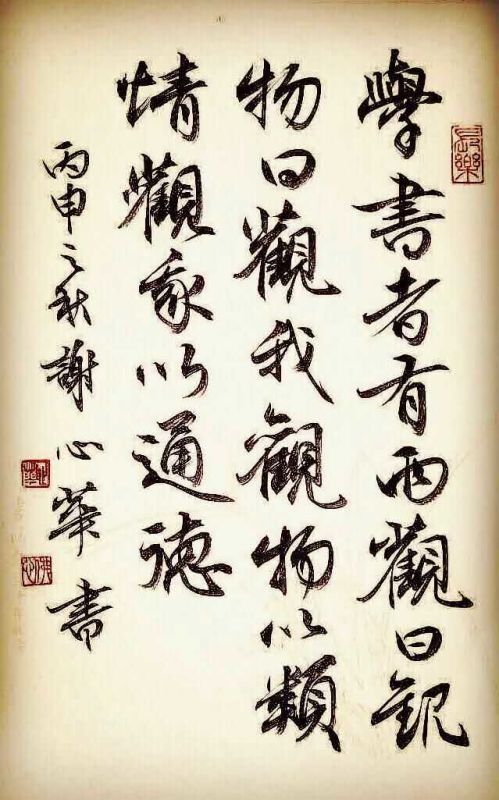 長樂
學書者有兩觀曰觀
物曰觀我觀物以類
情觀我以通德
丙申之秋謝心華書